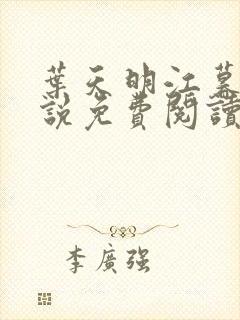 葉天明江慕
說免費閱讀
李廣強